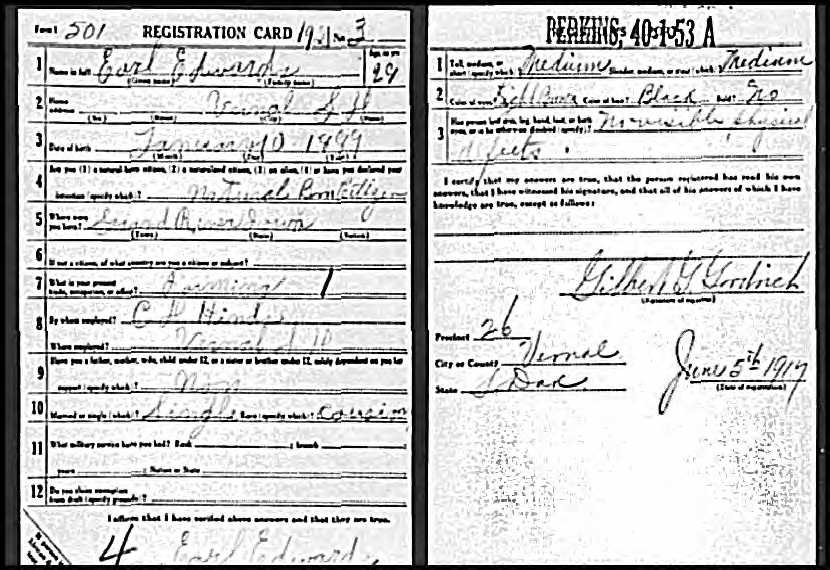 Form 1 501 REGISTRATION CARD No. 3
1 Name in full Earl Edwards Age, in yrs
(Given name) (Family name)
2 Home address Vernal S D
(No.) (Street) (City) (State)
3 Date of birth January 10
(Month) (Day) (Year)
4 Are you (1) a natural born citizen, (2) a naturalized citizen, (3) an alien, (4) or have you declared your
intention (specify which)? Natural Born
5 Where were you born? Grand River Iowa
(Town) (State) (Nation)
6 If not a citizen, of what country are you a citizen or subject?
7 What is your present trade, occupation, or office? Farming 1
8 By whom employed? C H
Where employed? Vernal S D
9 Have you a father, mother, wife, child under 12, or a sister or brother under 12, solely dependent on you for
support (specify which)? Non
10 Married or single (which)? Single Race (specify which)?
11 What military service have you had? Rank ; branch
years ; Nation or State
12 Do you claim exemption from draft (specify grounds)?
I affirm that I have verified above answers and that they are true.
4 Earl Edwards
PERKINS, 40-1-53 A
1 Tall, medium, or short (specify which)? Medium Slender, medium, or stout (which)? Medium
2 Color of eyes? Color of hair? Black Bald? No
3 Has person lost arm, leg, hand, foot, or both eyes, or is he otherwise disabled (specify)? No visible physical
defects.
I certify that my answers are true, that the person registered has read his own
answers, that I have witnessed his signature, and that all of his answers of which I have
knowledge are true, except as follows:
Gilbert G Goodrich
(Signature of registrar)
Precinct 26
City or County Vernal
State S Dak
June 5th 1917
(Date of registration)